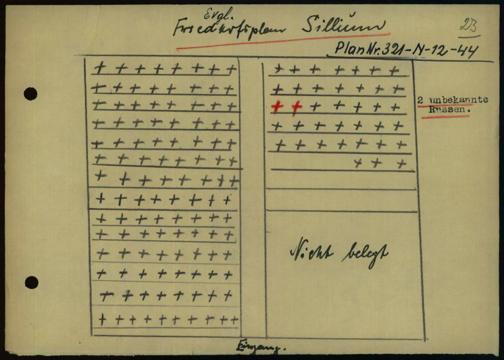 Evgl.
Friedhofsplan Sillium
23
Plan Nr. 321-N-12-44
2 unbekannte
Russen.
Nicht belegt
Eingang.